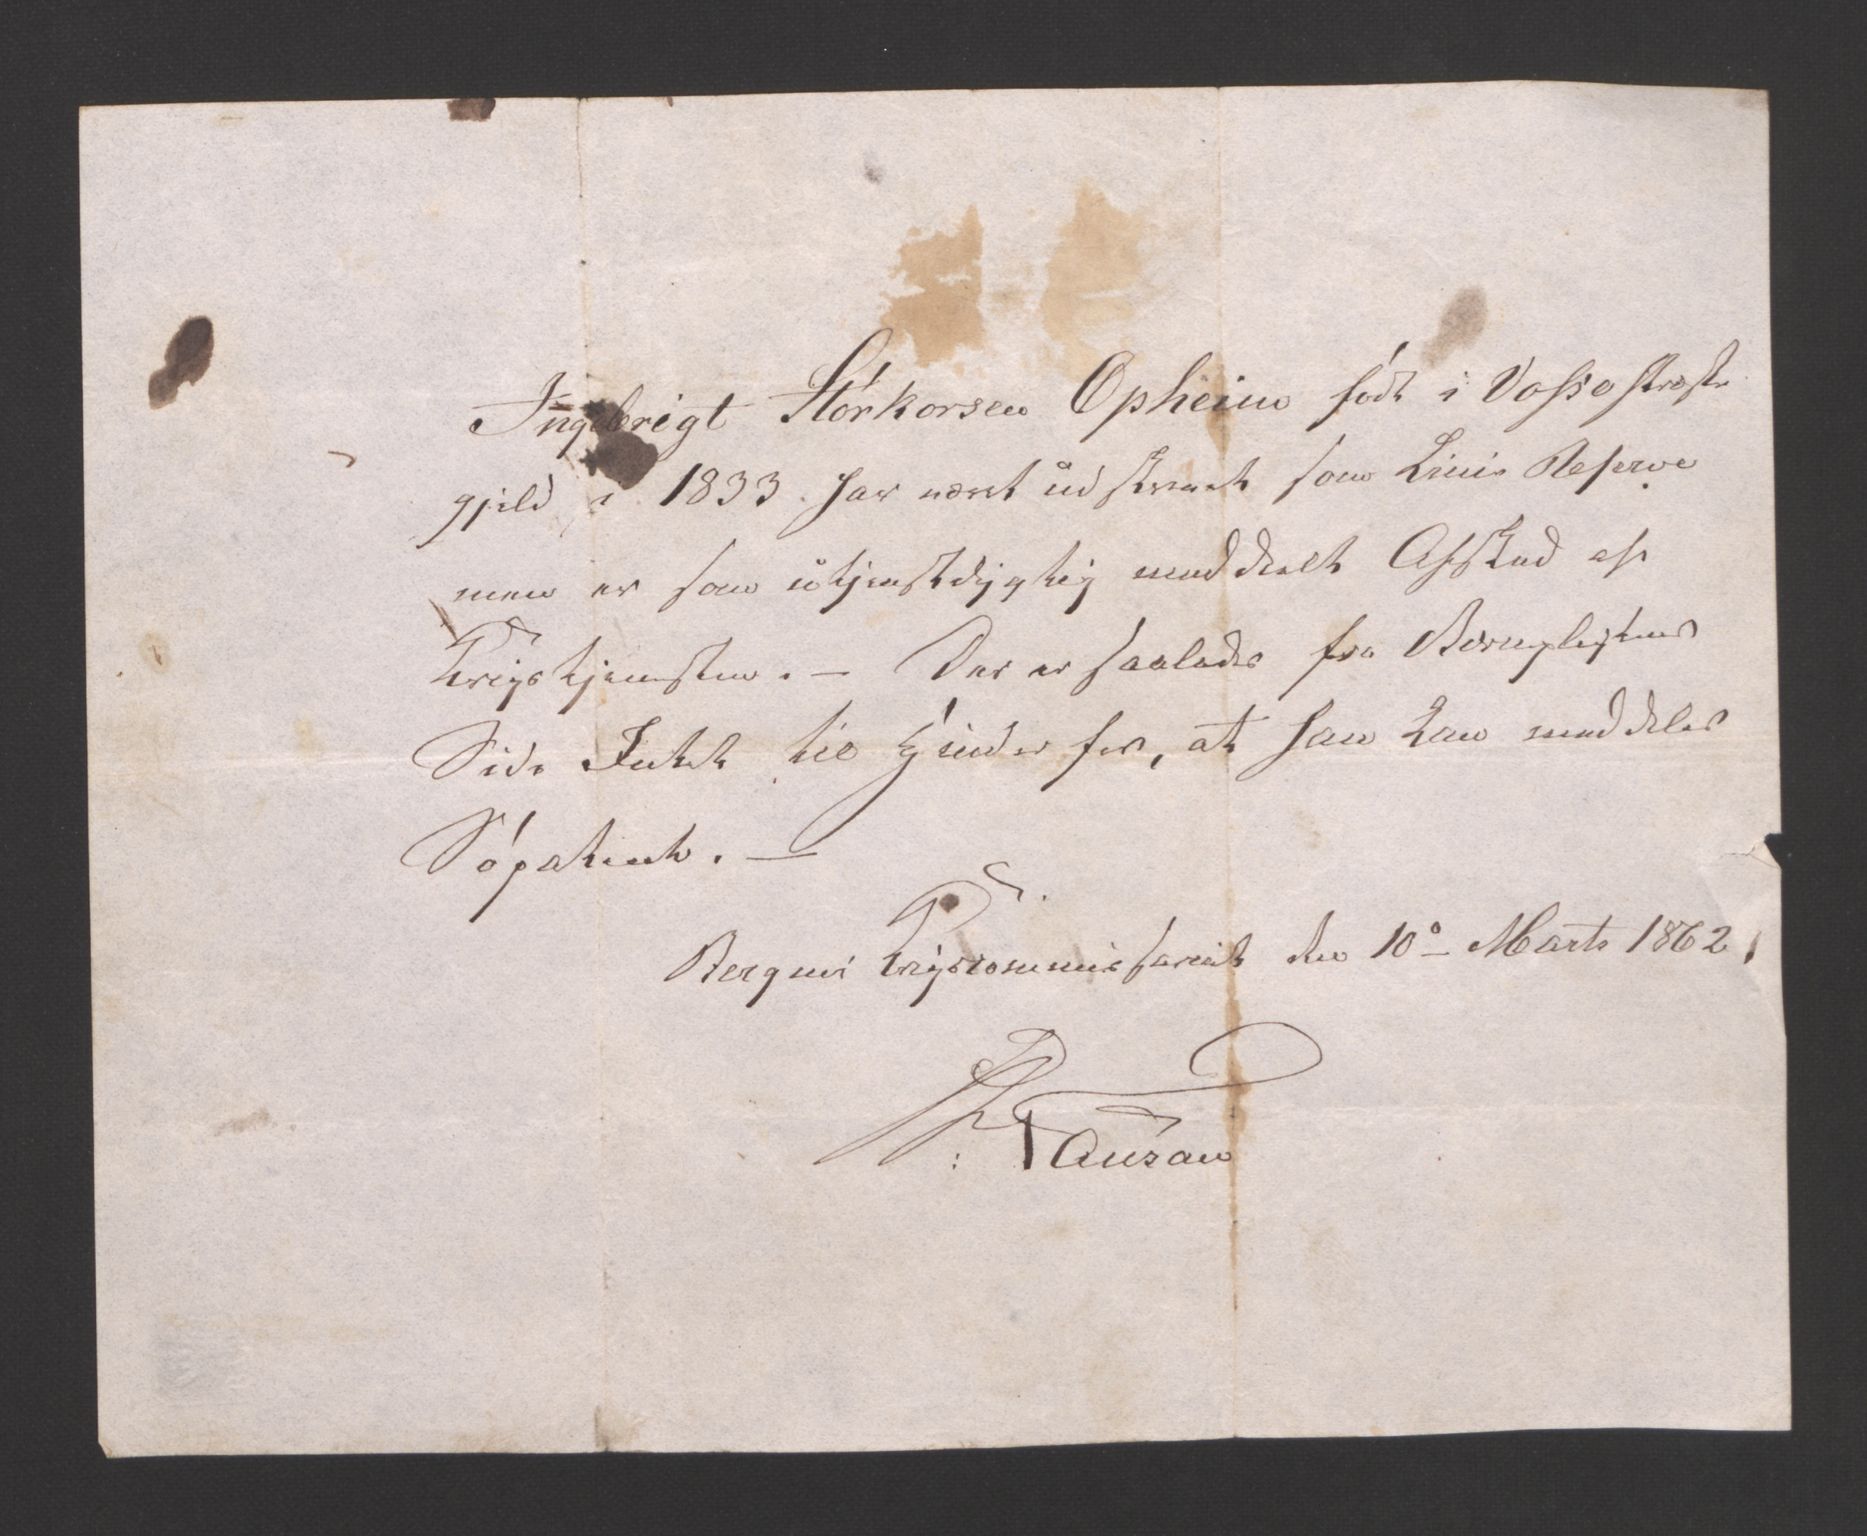 Ingebrigt Storkorsen Opheim född i Vosse Præste
gjeld i 1833 har været udskrevet som Linie Reserve
men er som utjenstdygtig meddeelt Afsked af
Krigstjenesten. — Der er saaledes fra Værnepligtens
Side Intet til Hinder for, at han kan meddeles
Søpatent. —
Bergens Krigscommissariat den 10de Marts 1862